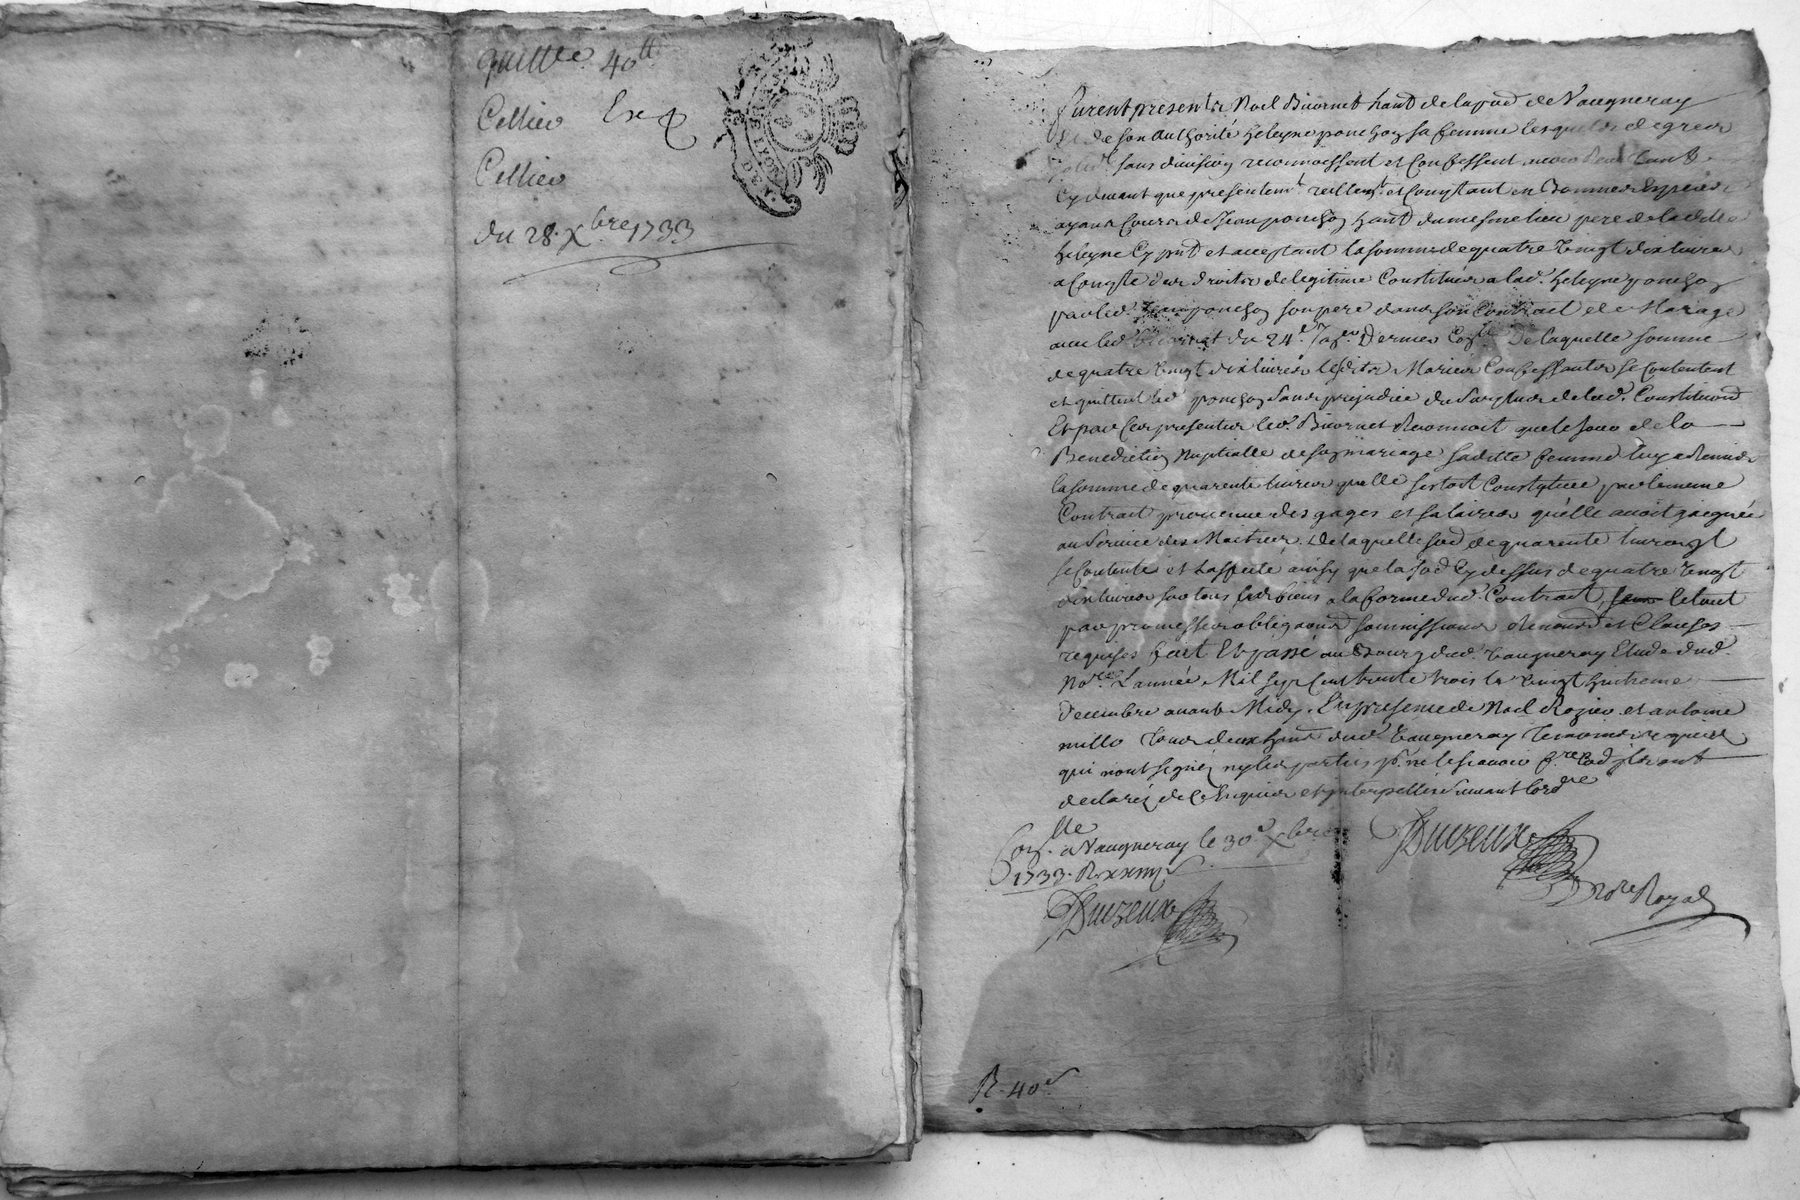 quittce 40tt
Cellier Exp
Cellier
du 28 Xbre 1733
GEN DE LYON
Furent presents Noel Biornet habt de la pad de Vaugneray
et de son authorité Heleyne ponchon sa femme lesquels de gré
solid. sans division reconnoissent et Confessent avoir Receu tant
Cy devant que presentemt reellemt et Comptant en Bonnes Especes
ayant Cours de Jean ponchon habt du mesme lieu pere de ladite
Heleyne Cy pnt et acceptant la somme de quatre vingt dix livres
a Compte des droits de legitime Constitués a lad. Heleyne ponchon
par led. Jean ponchon son pere dans son Contract de Mariage
avec led. Biornet du 24e Dernier Collé De laquelle somme
de quatre vingt dix livres lesdits Mariés Confessants se Contentent
et quittent led ponchon sans prejudice du Surplus de lad. Constitution
Et par Ces presentes led. Biornet Reconnoit que le Jour de la
Benediction Nuptialle de son mariage sadite femme luy a Remis
la somme de quarente livres quelle sestoit Constituée par le meme
Contract provenue des gages et salaires qu'elle avoit gaignée
au Service des Maitres. De laquelle sod de quarente livres il
se Contente et ainsy que la sod Cy dessus de quatre vingt
dix livres sur tous ses biens a la forme dud. Contract, le tout
par promesses obligaons soumissions Renons et Clauses
requises fait Et passé au Bourg dud. Vaugneray Etude dud.
Nore L'année Mil sept Cent trente trois le vingt huitieme
Decembre avant Midy. En presence de Noel Rozier et antoine
millo Tous deux habts dud. Vaugneray Temoins requis
qui n'ont signé ny les parties pr. ne le scavoir
declaré de Ce Enquis et interpellés suivant lordce
Collé a Vaugneray le 30e Xbre
1733. R
Duizeux
Duizeux
Nore Royal
R. 40s